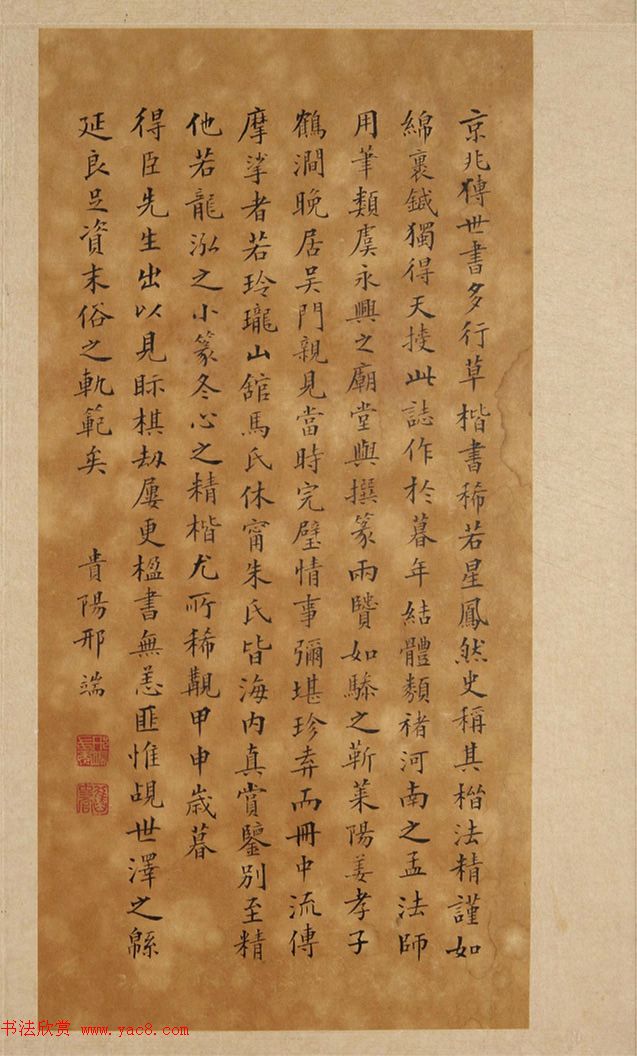 京兆傳世書多行草楷書稀若星鳳然史稱其楷法精謹如
綿裹鍼獨得天授此誌作於暮年結體類褚河南之孟法師
用筆類虞永興之廟堂與撰篆兩贒如驂之靳萊陽姜孝子
鶴澗晚居吳門親見當時完璧情事彌堪珍弆而冊中流傳
摩挲者若玲瓏山館馬氏休甯朱氏皆海内真賞鑒別至精
他若龍泓之小篆冬心之精楷尤所稀覯甲申歲暮
得臣先生出以見眎棋劫屢更楹書無恙匪惟覘世澤之緜
延良足資末俗之軌範矣 貴陽邢端
书法欣赏 www.yac8.com